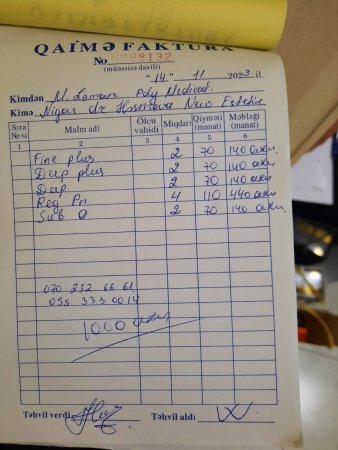 QAİMƏ FAKTURA
No 0009132
(müəssisə daxili)
"14" 11 2023 il.
Kimdən M. Laman Poly Medical.
Kimə Nigar dr New Estetic
Sıra №-si Malm adı Ölcü vahidi Miqdarı Qiyməti (manat) Məbləği (manat)
1 2 3 4 5 6
Fine plus 2 70 140 azn.
Deep plus 2 70 140 azn.
Deep 2 70 140 azn
Reg Pn 4 110 440 azn
Sub Q 2 70 140 azn.
070 232 66 61
055 333 00 14
1000 azn
Təhvil verdi Təhvil aldı